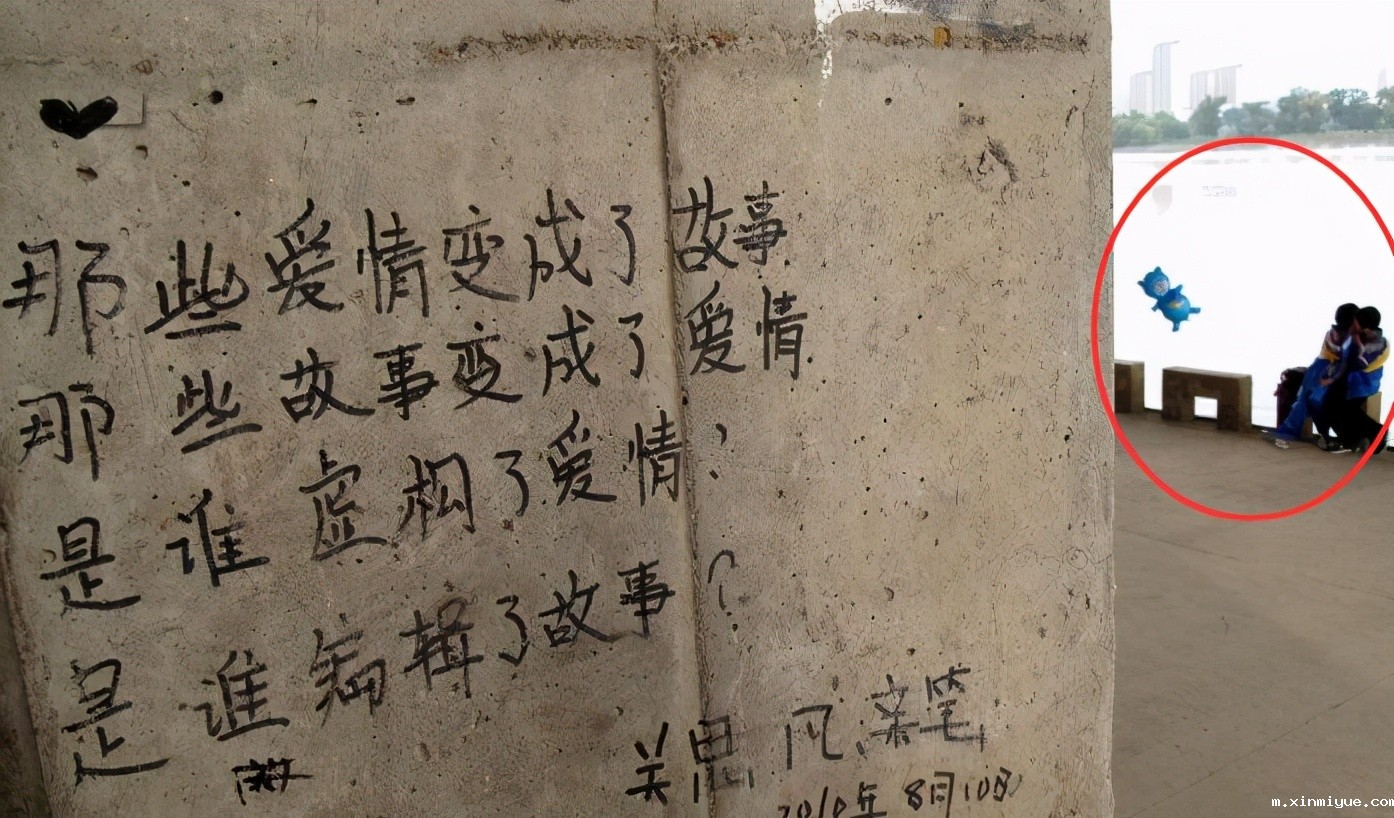 那些爱情变成了故事
那些故事变成了爱情
是谁虚构了爱情?
是谁编辑了故事?
关思风亲笔
2010年8月10日
m.xinmiyue.com